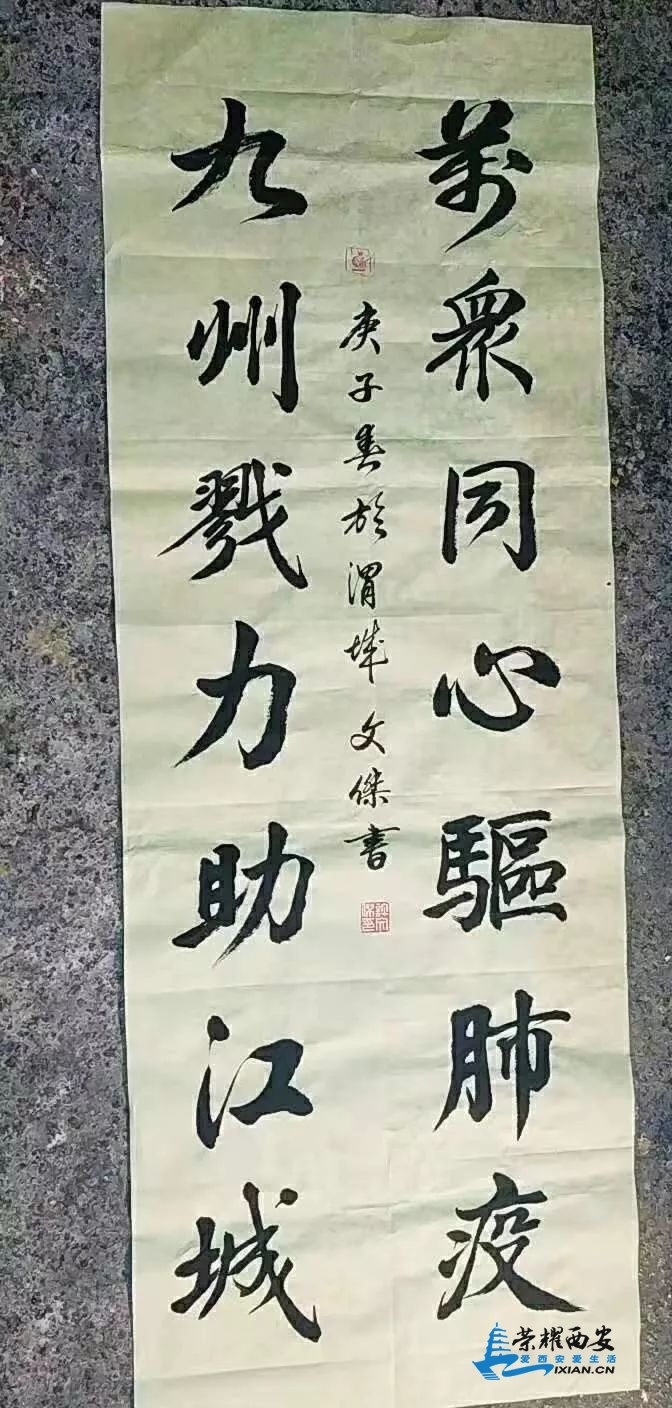 萬衆同心驅肺疫
九州戮力助江城
庚子春於渭城文傑書
荣耀西安
爱西安爱生活
IXIAN.CN